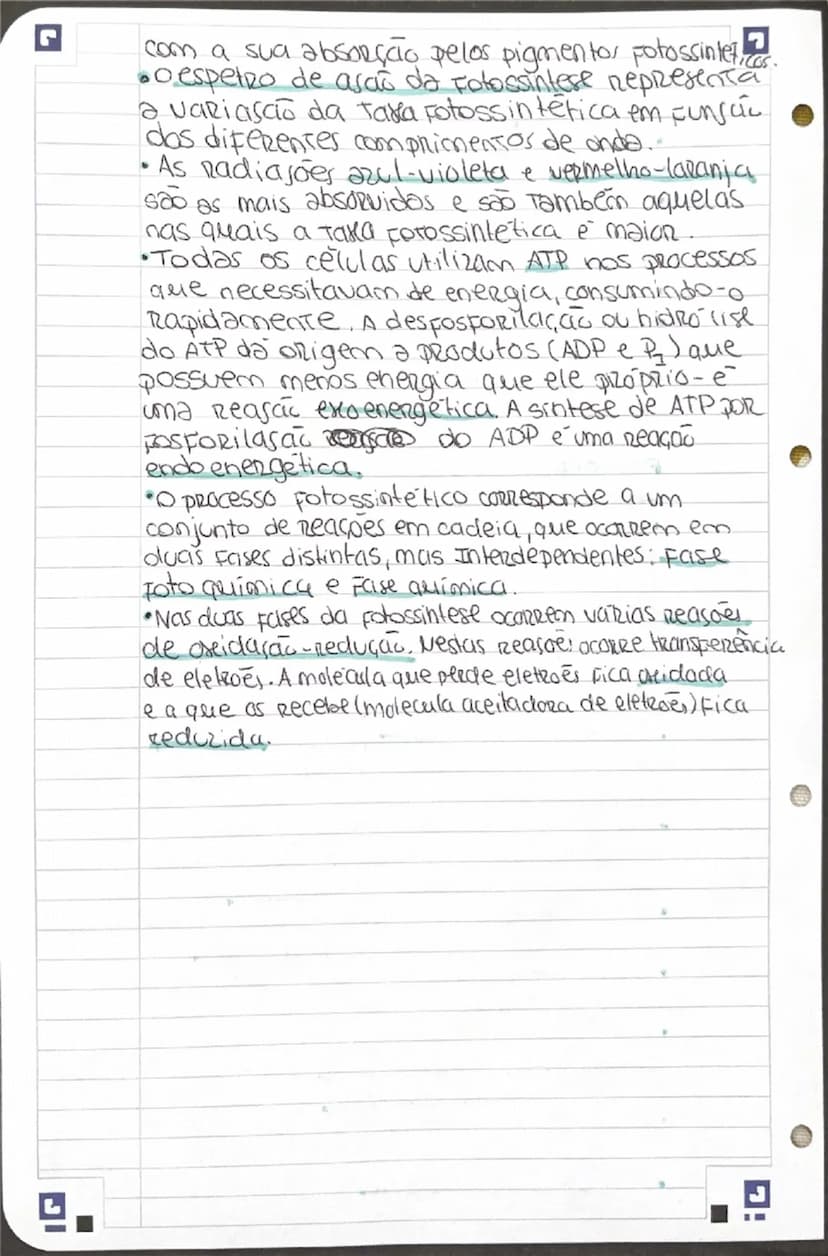 com a sua absorção pelos pigmentos fotossintéticos.
• O espetro de ação da fotossíntese representa
a variação da taxa fotossintética em função
dos diferentes comprimentos de onda.
• As radiações azul-violeta e vermelho-laranja
são as mais absorvidas e são também aquelas
nas quais a taxa fotossintética é maior.
• Todas as células utilizam ATP nos processos
que necessitavam de energia, consumindo-o
rapidamente. A desfosforilação ou hidrólise
do ATP dá origem a produtos (ADP e Pi) que
possuem menos energia que ele próprio - é
uma reação exoenergética. A síntese de ATP por
fosforilação do ADP é uma reação
endoenergética.
• O processo fotossintético corresponde a um
conjunto de reações em cadeia, que ocorrem em
duas fases distintas, mas interdependentes: fase
fotoquímica e fase química.
• Nas duas fases da fotossíntese ocorrem várias reações
de oxidação-redução. Nestas reações ocorre transferência
de eletrões. A molécula que perde eletrões fica oxidada
e a que os recebe (molécula aceitadora de eletrões) fica
reduzida.